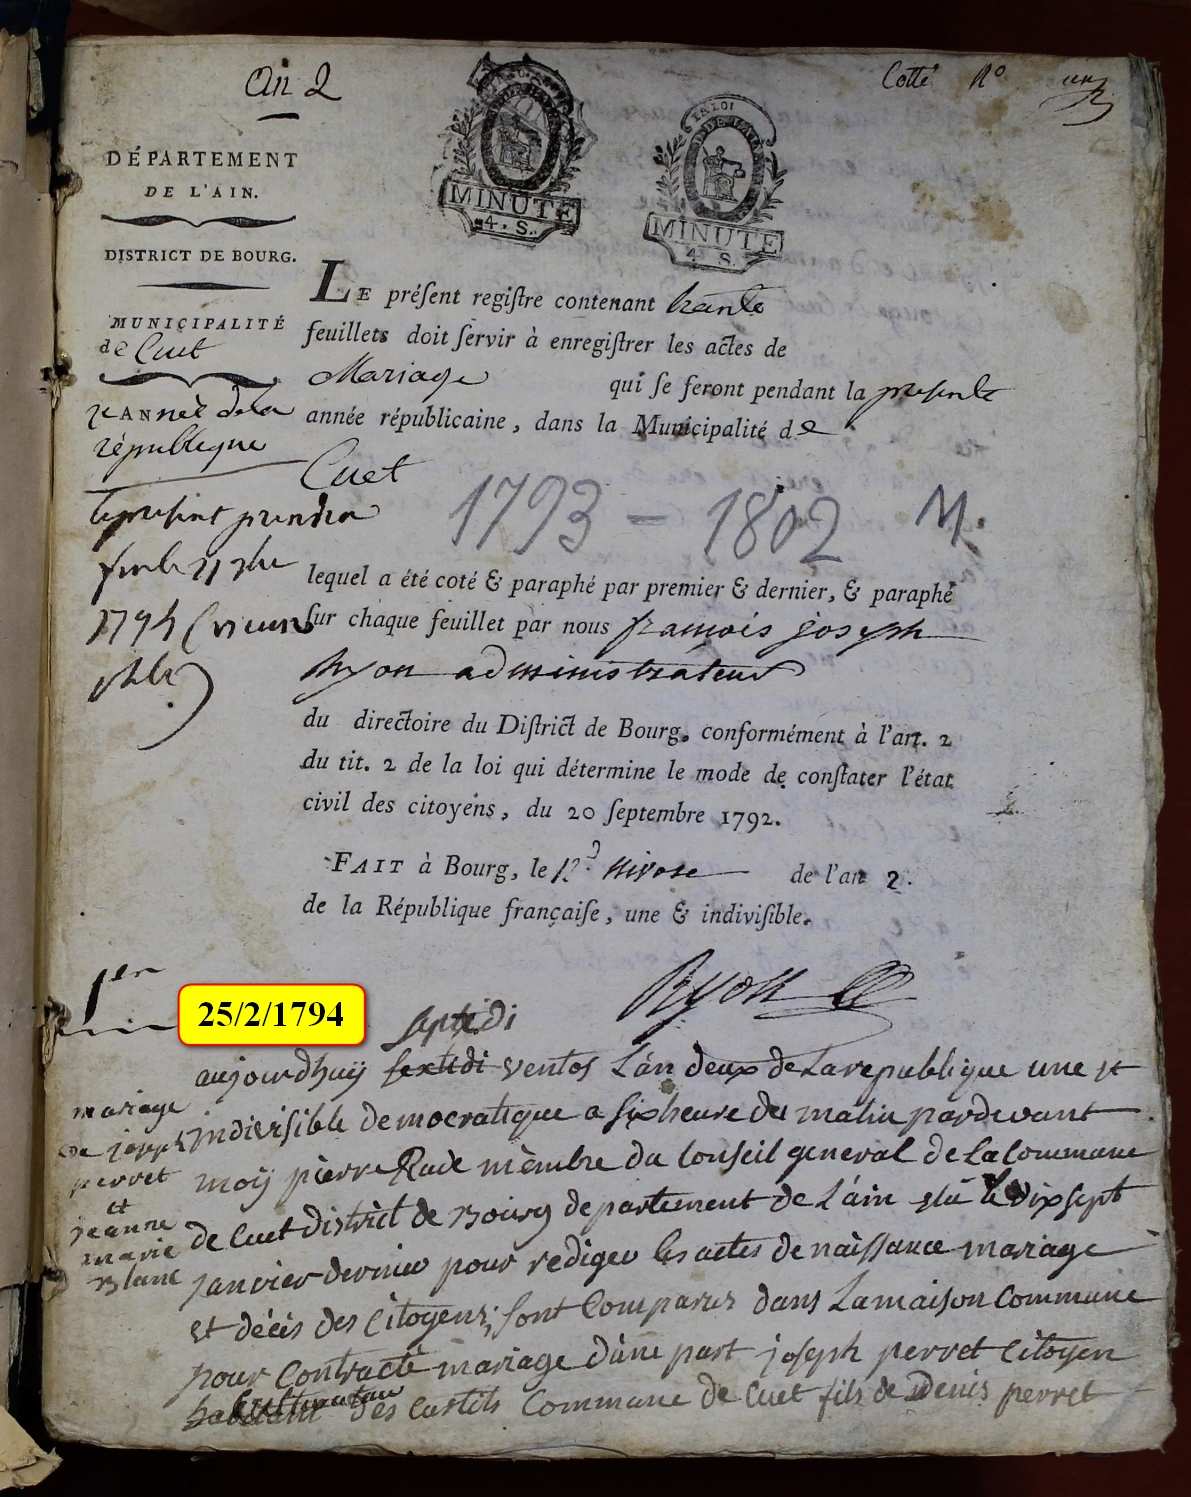 An 2
Cotté N° un
LA LOI
MINUTE
4. S.
MINUTE
4 S.
DÉPARTEMENT
DE L'AIN.
DISTRICT DE BOURG.
MUNICIPALITÉ
de Cuet
2e ANNEE de la
république
le present prendra
fin le 21 7bre
1794 (vieux
stile)
LE préſent regiſtre contenant trente
feuillets doit ſervir à enregiſtrer les actes de
Mariage qui ſe feront pendant la presente
année républicaine, dans la Municipalité de
Cuet
1793 - 1802 M.
lequel a été coté & paraphé par premier & dernier, & paraphé
ſur chaque feuillet par nous francois joseph
Ryon administrateur
du directoire du Diſtrict de Bourg, conformément à l'art. 2
du tit. 2 de la loi qui détermine le mode de conſtater l'état
civil des citoyens, du 20 ſeptembre 1792.
FAIT à Bourg, le nivose de l'an 2.
de la République françaiſe, une & indiviſible.
Ryon
1er
25/2/1794
septidi
aujourdhuy sextidi ventos L'an deux de La republique une et
indivisible democratique a six heure du matin pardevant
moy pierre membre du Conseil general de La Commune
de Cuet district de Bourg departement de L'ain elû le dix sept
janvier dernier pour rediger les actes de naissance mariage
et décés des Citoyens; sont Comparus dans La maison Commune
pour Contracté mariage d'une part joseph perret Citoyen
Cultivateur
habitant des Commune de Cuet fils de Denis perret
mariage
de joseph
perret
et
jeanne
marie
Blanc